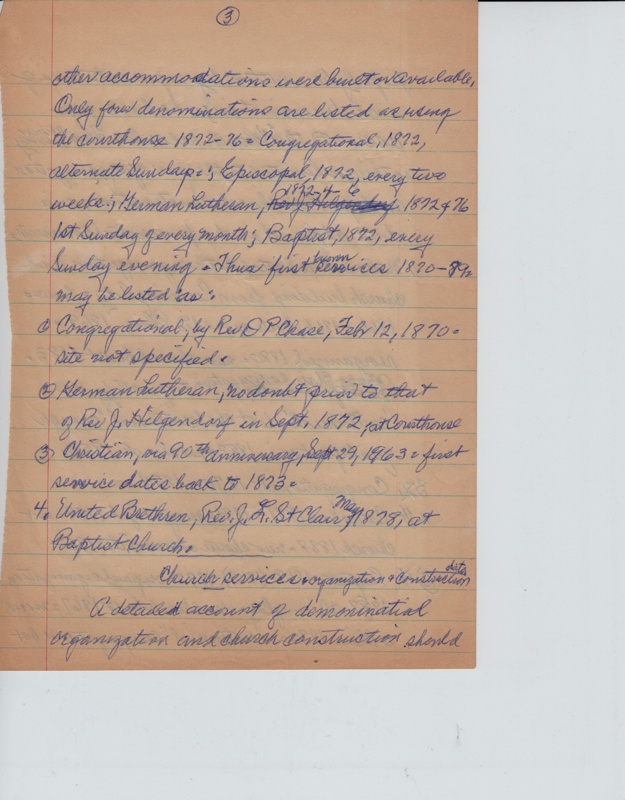 3
other accommodations were built or available.
Only four denominations are listed as using
the courthouse 1872-76 = Congregational, 1872,
alternate Sundays; Episcopal, 1872, every two
weeks; German Lutheran, Rev J. Hilgendorf 1872 & 76
1872 & 6
1st Sunday of every month; Baptist, 1872, every
Sunday evening. Thus first known services 1870-89
may be listed "as":
① Congregational, by Rev D P Chase, Feb 12, 1870 =
site not specified.
② German Lutheran, no doubt prior to that
of Rev J. Hilgendorf in Sept. 1872, at Courthouse
③ Christian, via 90th anniversary, Sept 29, 1963 = first
service dates back to 1873 =
4. United Brethren, Rev. J. L. St Clair, May 1878, at
Baptist Church.
Church services & organization & construction dates
A detailed account of denominatial
organization and church construction should